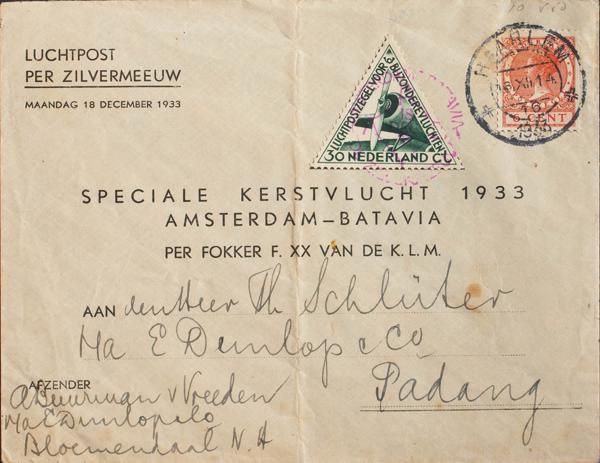 LUCHTPOST
PER ZILVERMEEUW
MAANDAG 18 DECEMBER 1933
LUCHTPOSTZEGEL VOOR BIJZONDERE VLUCHTEN
30 NEDERLAND CT
HAARLEM
16 XII 14
1933
CENT
SPECIALE KERSTVLUCHT 1933
AMSTERDAM–BATAVIA
PER FOKKER F. XX VAN DE K.L.M.
AAN den Heer Th Schlüter
Ma E Dunlop & Co
Padang
AFZENDER
A Buurman v Vreeden
Ma E Dunlop & Co
Bloemendaal N.H